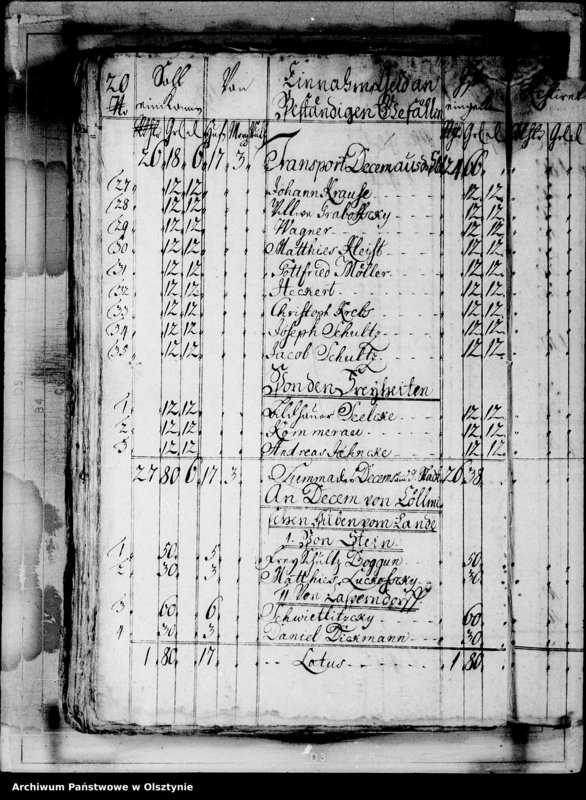 20 Soll Von Einnahmgeld an
No. einkomen Beständigen Gefällen
26. 18. 6. 17. 3. Transport Decem aus der 24. 66.
27. 12. 12. Johann Krause 12. 12.
28. 12. 12. Grabofsky 12. 12.
29. 12. 12. Wagner 12. 12.
30. 12. 12. Matthies Kleist 12. 12.
31. 12. 12. Gottfried Möller 12. 12.
32. 12. 12. Heckert 12. 12.
33. 12. 12. Christoph Krebs 12. 12.
34. 12. 12. Joseph Schultz 12. 12.
35. 12. 12. Jacob Schultz 12. 12.
Von den Freyheiten
1. 12. 12. Bildhauer Seelcke 12. 12.
2. 12. 12. Kommerau 12. 12.
3. 12. 12. Andreas Jæhncke 12. 12.
27. 80. 6. 17. 3. Summa Decem 26. 38.
An Decem von Cöllmi
schen Huben vom Lande
I. Von Stein
1. 50. 5. Frey Schultz Doggun 50.
2. 30. 3. Matthies Luckofsky 30.
II. Von Zasperndorff
3. 60. 6. Schwietlitzcky 60.
4. 30. 3. Daniel Dickmann 30.
1. 80. 17. Latus 1. 80.
Archiwum Państwowe w Olsztynie